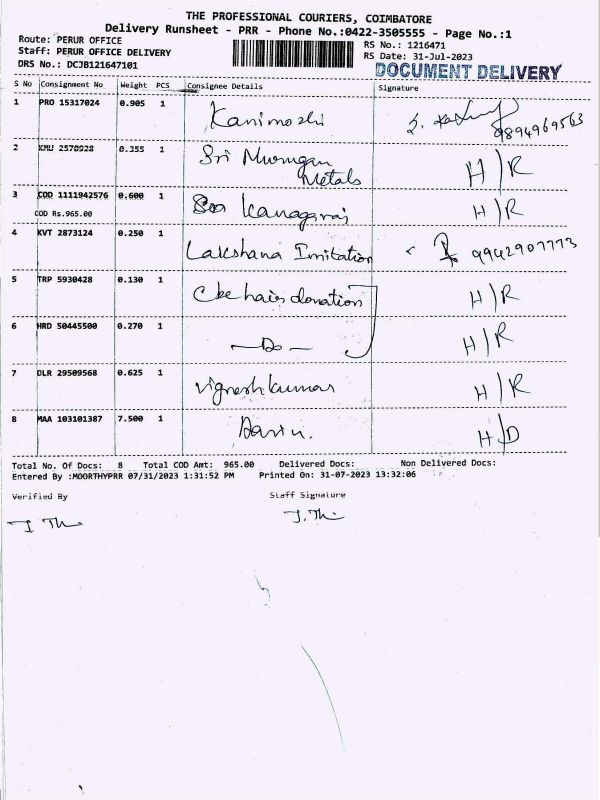 THE PROFESSIONAL COURIERS, COIMBATORE
Delivery Runsheet - PRR - Phone No.:0422-3505555 - Page No.:1
Route: PERUR OFFICE
RS No.: 1216471
Staff: PERUR OFFICE DELIVERY
RS Date: 31-Jul-2023
DRS No.: DCJB121647101
DOCUMENT DELIVERY
S No Consignment No Weight PCS Consignee Details Signature
1 PRO 15317024 0.905 1 Kanimozhi 9894969563
2 KMU 2570928 0.355 1 Sri Murugan Metals H/R
3 COD 1111942576 0.600 1 Kanagaraj H/R
COD Rs.965.00
4 KVT 2873124 0.250 1 Lakshana Imitation 9942907773
5 TRP 5930428 0.130 1 hair donation H/R
6 HRD 50445500 0.270 1 —Do— H/R
7 DLR 29509568 0.625 1 Vignesh kumar H/R
8 MAA 103101387 7.500 1 H/D
Total No. Of Docs: 8 Total COD Amt: 965.00 Delivered Docs: Non Delivered Docs:
Entered By :MOORTHYPRR 07/31/2023 1:31:52 PM Printed On: 31-07-2023 13:32:06
Verified By Staff Signature